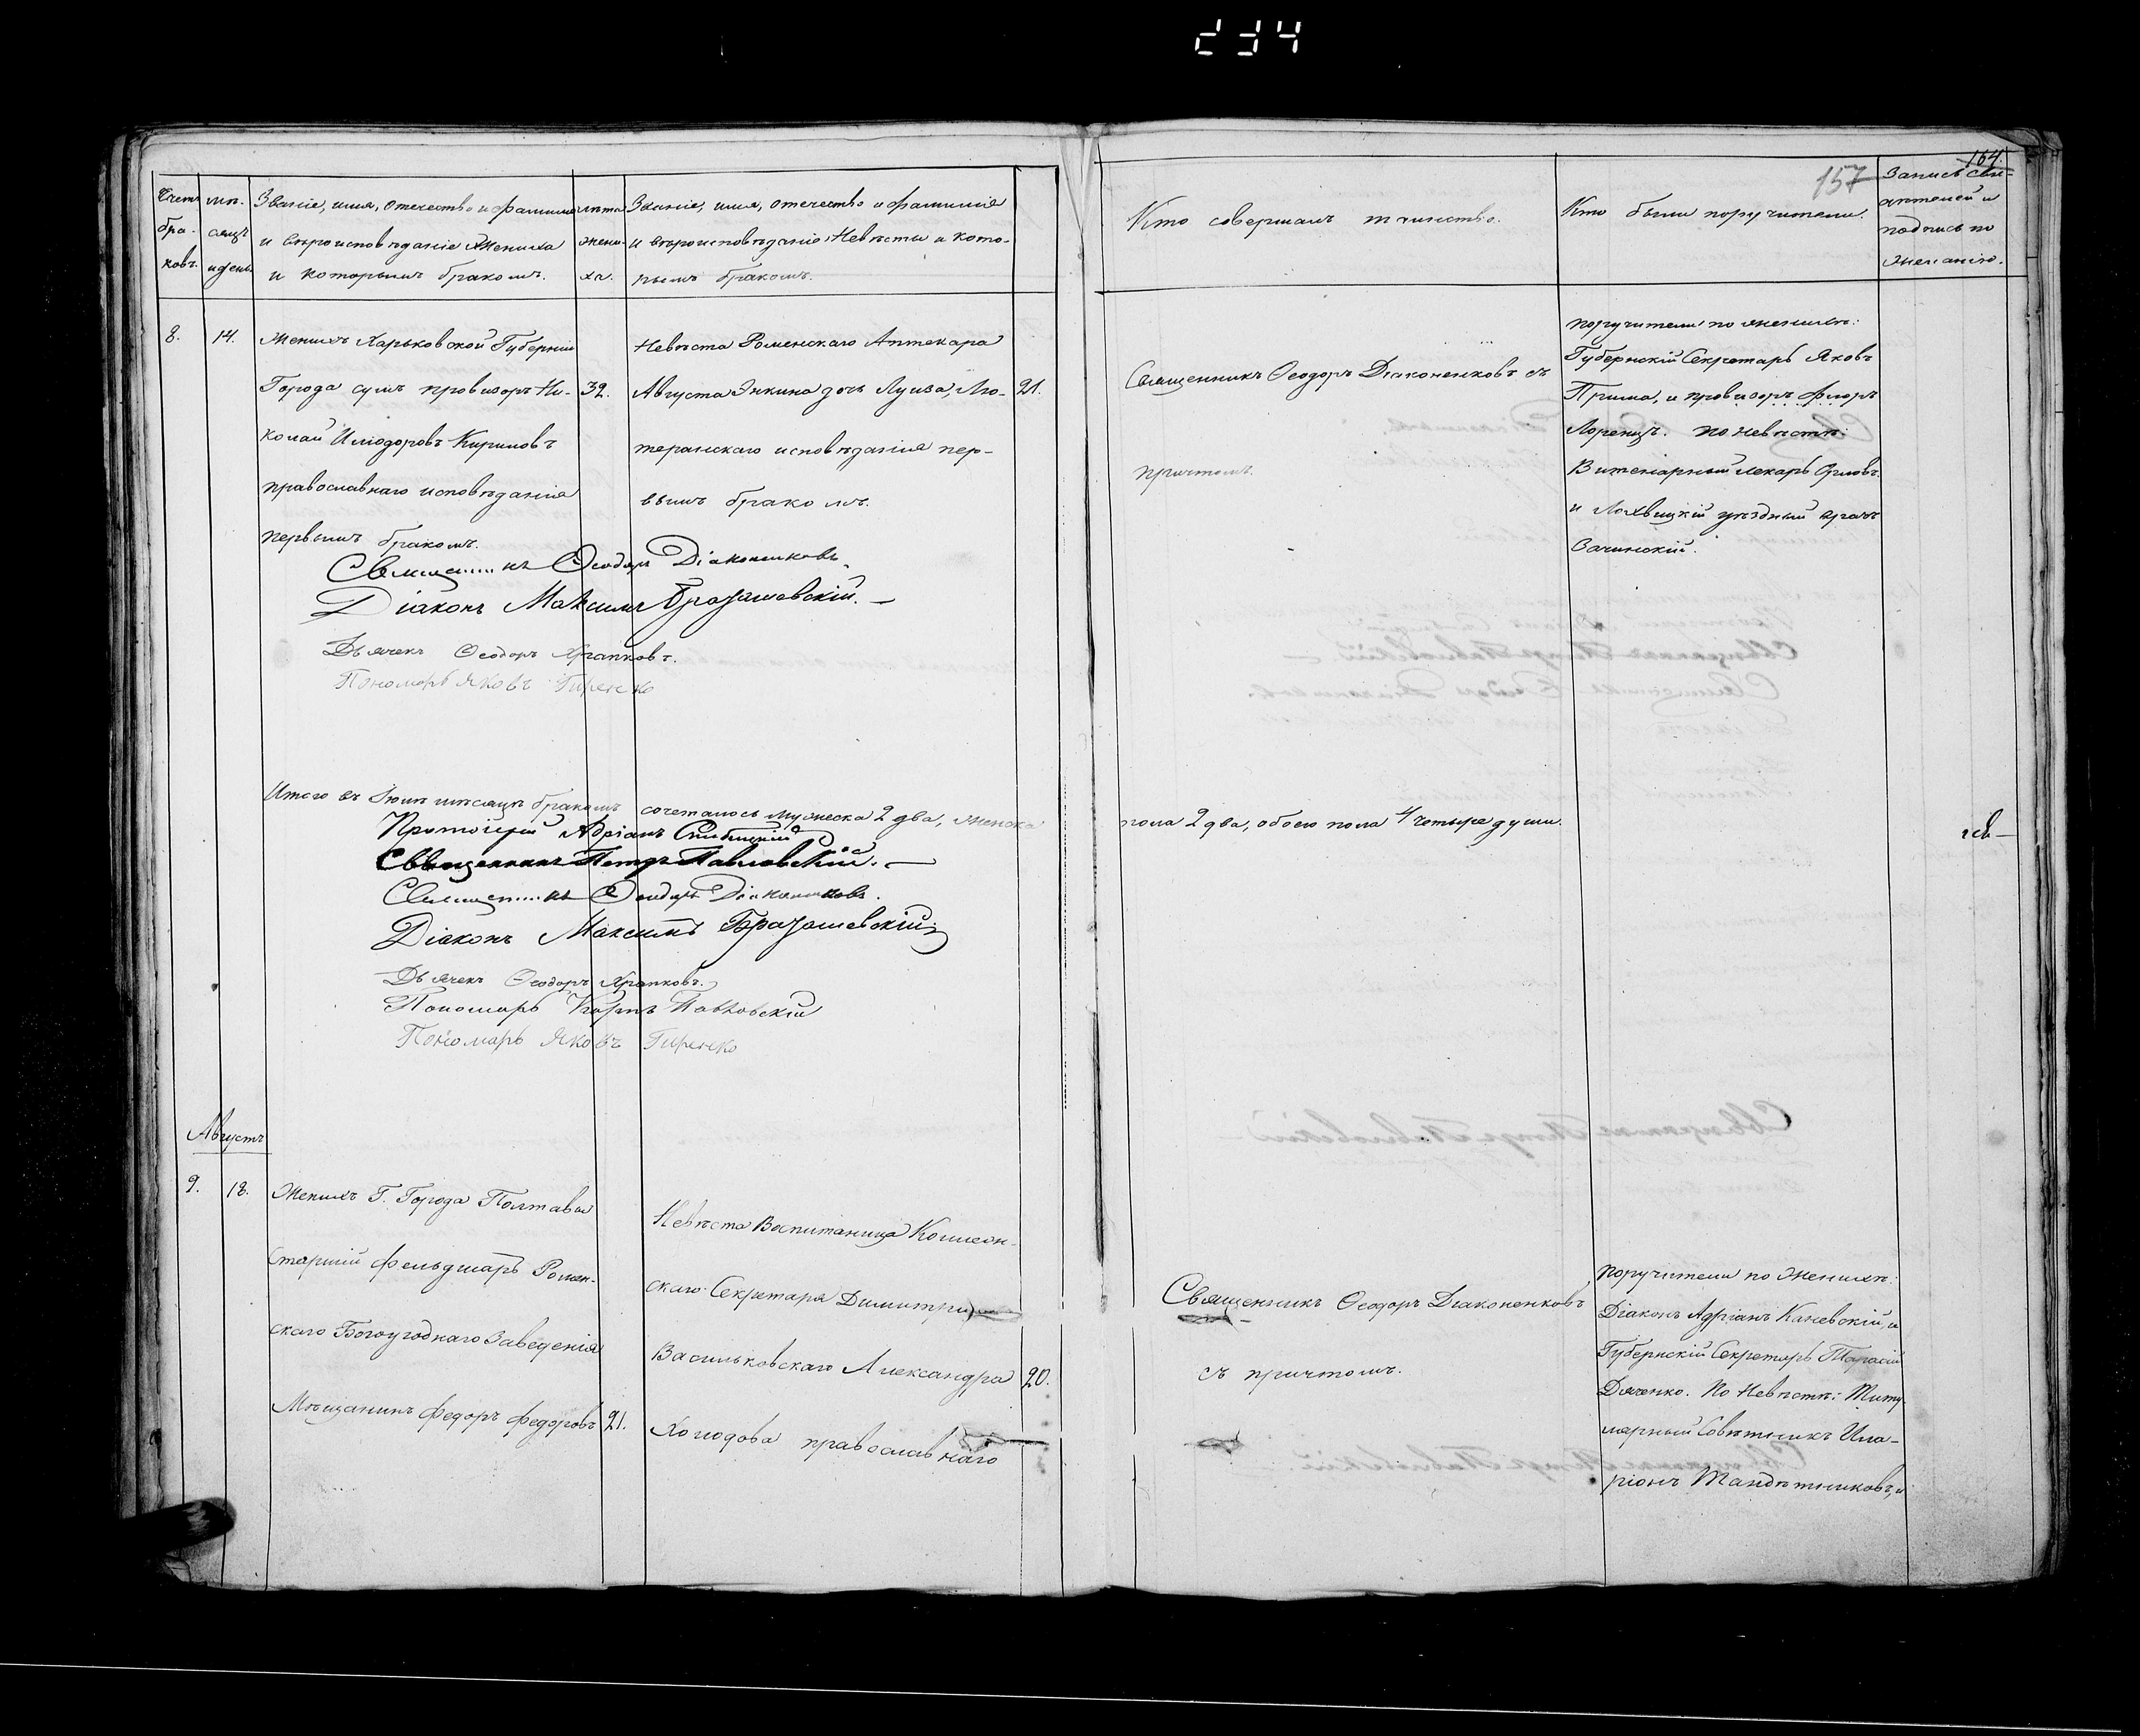 234
164.
157
Счетъ бра-ковъ.
мѣ-сяцъ и день
Званіе, имя, отечество и фамилія
и вѣроисповѣданіе Жениха
и которымъ бракомъ.
лѣта жени-ха.
Званіе, имя, отечество и фамилія
и вѣроисповѣданіе Невѣсты и кото-
рымъ бракомъ.
Кто совершалъ таинство.
Кто были поручители.
Запись сви-
дѣтелей и
подпись по
желанію.
8.
14.
Женихъ Харьковской Губерніи
Города сумъ провизоръ Ни-
колай Иліодоровъ Кириловъ
православнаго исповѣданія
первымъ бракомъ.
32.
Невѣста Роменскаго Аптекаря
Августа Энкина дочь Луиза, Лю-
теранскаго исповѣданія пер-
вымъ бракомъ.
21.
Священникъ Ѳеодоръ Діаконенковъ съ
причтомъ.
поручители по женихѣ:
Губернскій Секретарь Яковъ
Прима, и провизоръ Флоръ
Лоренцъ. По невѣстѣ:
Витенарный лекарь Орловъ
и Лохвицкій уѣздный врачъ
Священникъ Ѳеодоръ Діаконенковъ.
Діаконъ Максимъ
Дьячекъ Ѳеодоръ Храпковъ.
Пономарь Яковъ Гиренко
Итого въ Іюлѣ мѣсяцѣ бракомъ сочеталось мужеска 2 два, женска
пола 2 два, обоего пола 4 четыре души.
Протоіерей Адріанъ
Священникъ Петръ Павловскій.
Священникъ Ѳеодоръ Діаконенковъ.
Діаконъ Максимъ
Дьячекъ Ѳеодоръ Храпковъ.
Пономарь Карпъ Павловскій
Пономарь Яковъ Гиренко
Августъ
9.
18.
Женихъ Г. Города Полтавы
Старшій фельдшаръ Ромен-
скаго Богоугоднаго Заведенія
Мѣщанинъ Федоръ Федоровъ
21.
Невѣста Воспитаница Коллеж-
скаго Секретаря Димитрія
Васильковскаго Александра
Холодова православнаго
20.
Священникъ Ѳеодоръ Діаконенковъ
съ причтомъ.
поручители по Женихѣ:
Діаконъ Адріанъ Каневскій, и
Губернскій Секретарь Тарасій
Дяченко. По Невѣстѣ: Титу-
лярный Совѣтникъ Ила-
ріонъ